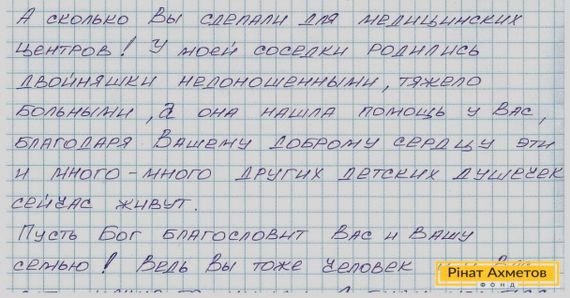 А сколько Вы сделали для медицинских
центров! У моей соседки родились
двойняшки недоношенными, тяжело
больными, а она нашла помощь у Вас,
благодаря Вашему доброму сердцу эти
и много-много других детских душечек
сейчас живут.
Пусть Бог благословит Вас и Вашу
семью! Ведь Вы тоже человек
Рінат Ахметов
ФОНД